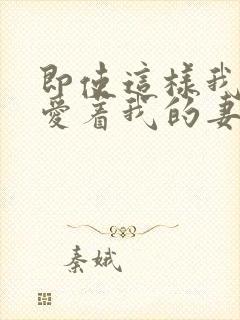 即使這樣我
愛著我的妻
秦娥